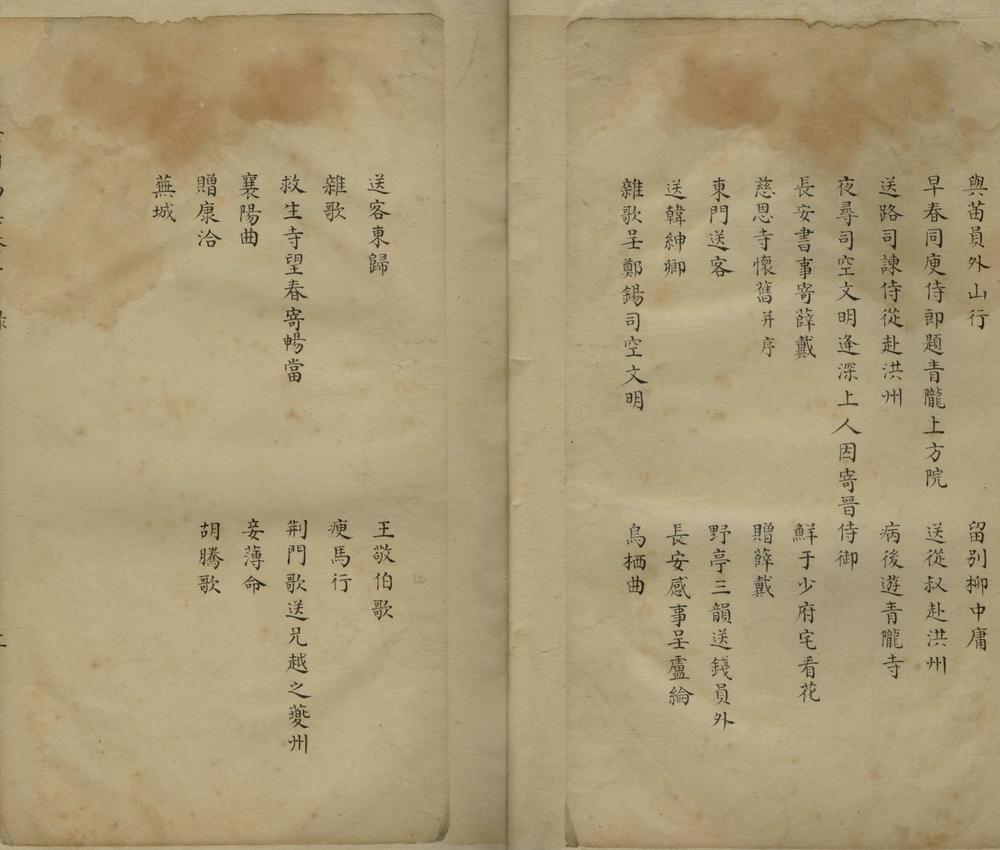 與苗員外山行
留別柳中庸
早春同庾侍郎題青龍上方院
送從叔赴洪州
送路司諫侍從赴洪州
病後遊青龍寺
夜尋司空文明逢深上人因寄晉侍御
長安書事寄薛戴
鮮于少府宅看花
慈恩寺懷舊并序
贈薛戴
東門送客
野亭三韻送錢員外
送韓紳卿
長安感事呈盧綸
雜歌呈鄭錫司空文明
烏栖曲
送客東歸
王敬伯歌
雜歌
瘦馬行
救生寺望春寄暢當
荆門歌送兄越之夔州
襄陽曲
妾薄命
贈康洽
胡騰歌
蕪城